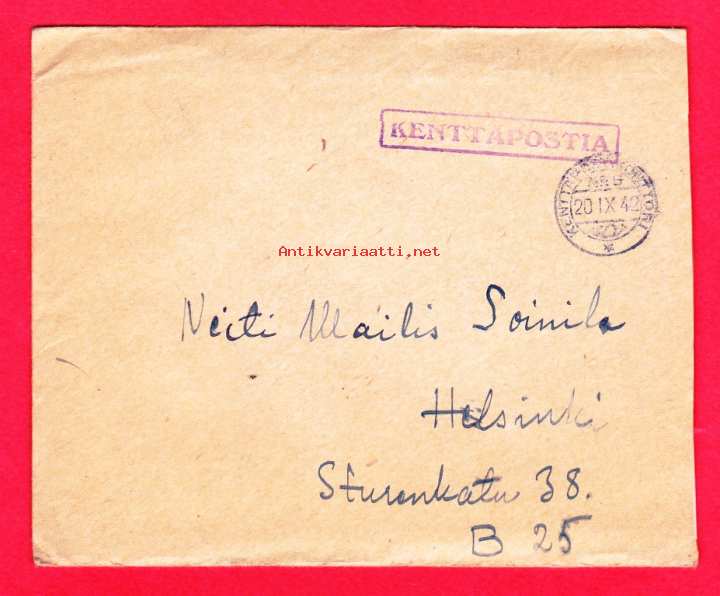 KENTTÄPOSTIA
KENTTÄPOSTIKONTTORI
No 5
20 IX 42
Antikvariaatti.net
Neiti Mailis Soinila
Helsinki
Sturenkatu 38.
B 25